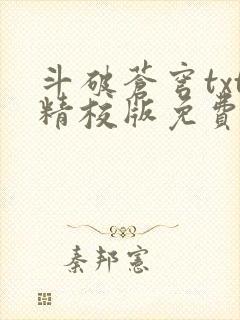 斗破蒼穹txt
精校版免費
秦邦憲